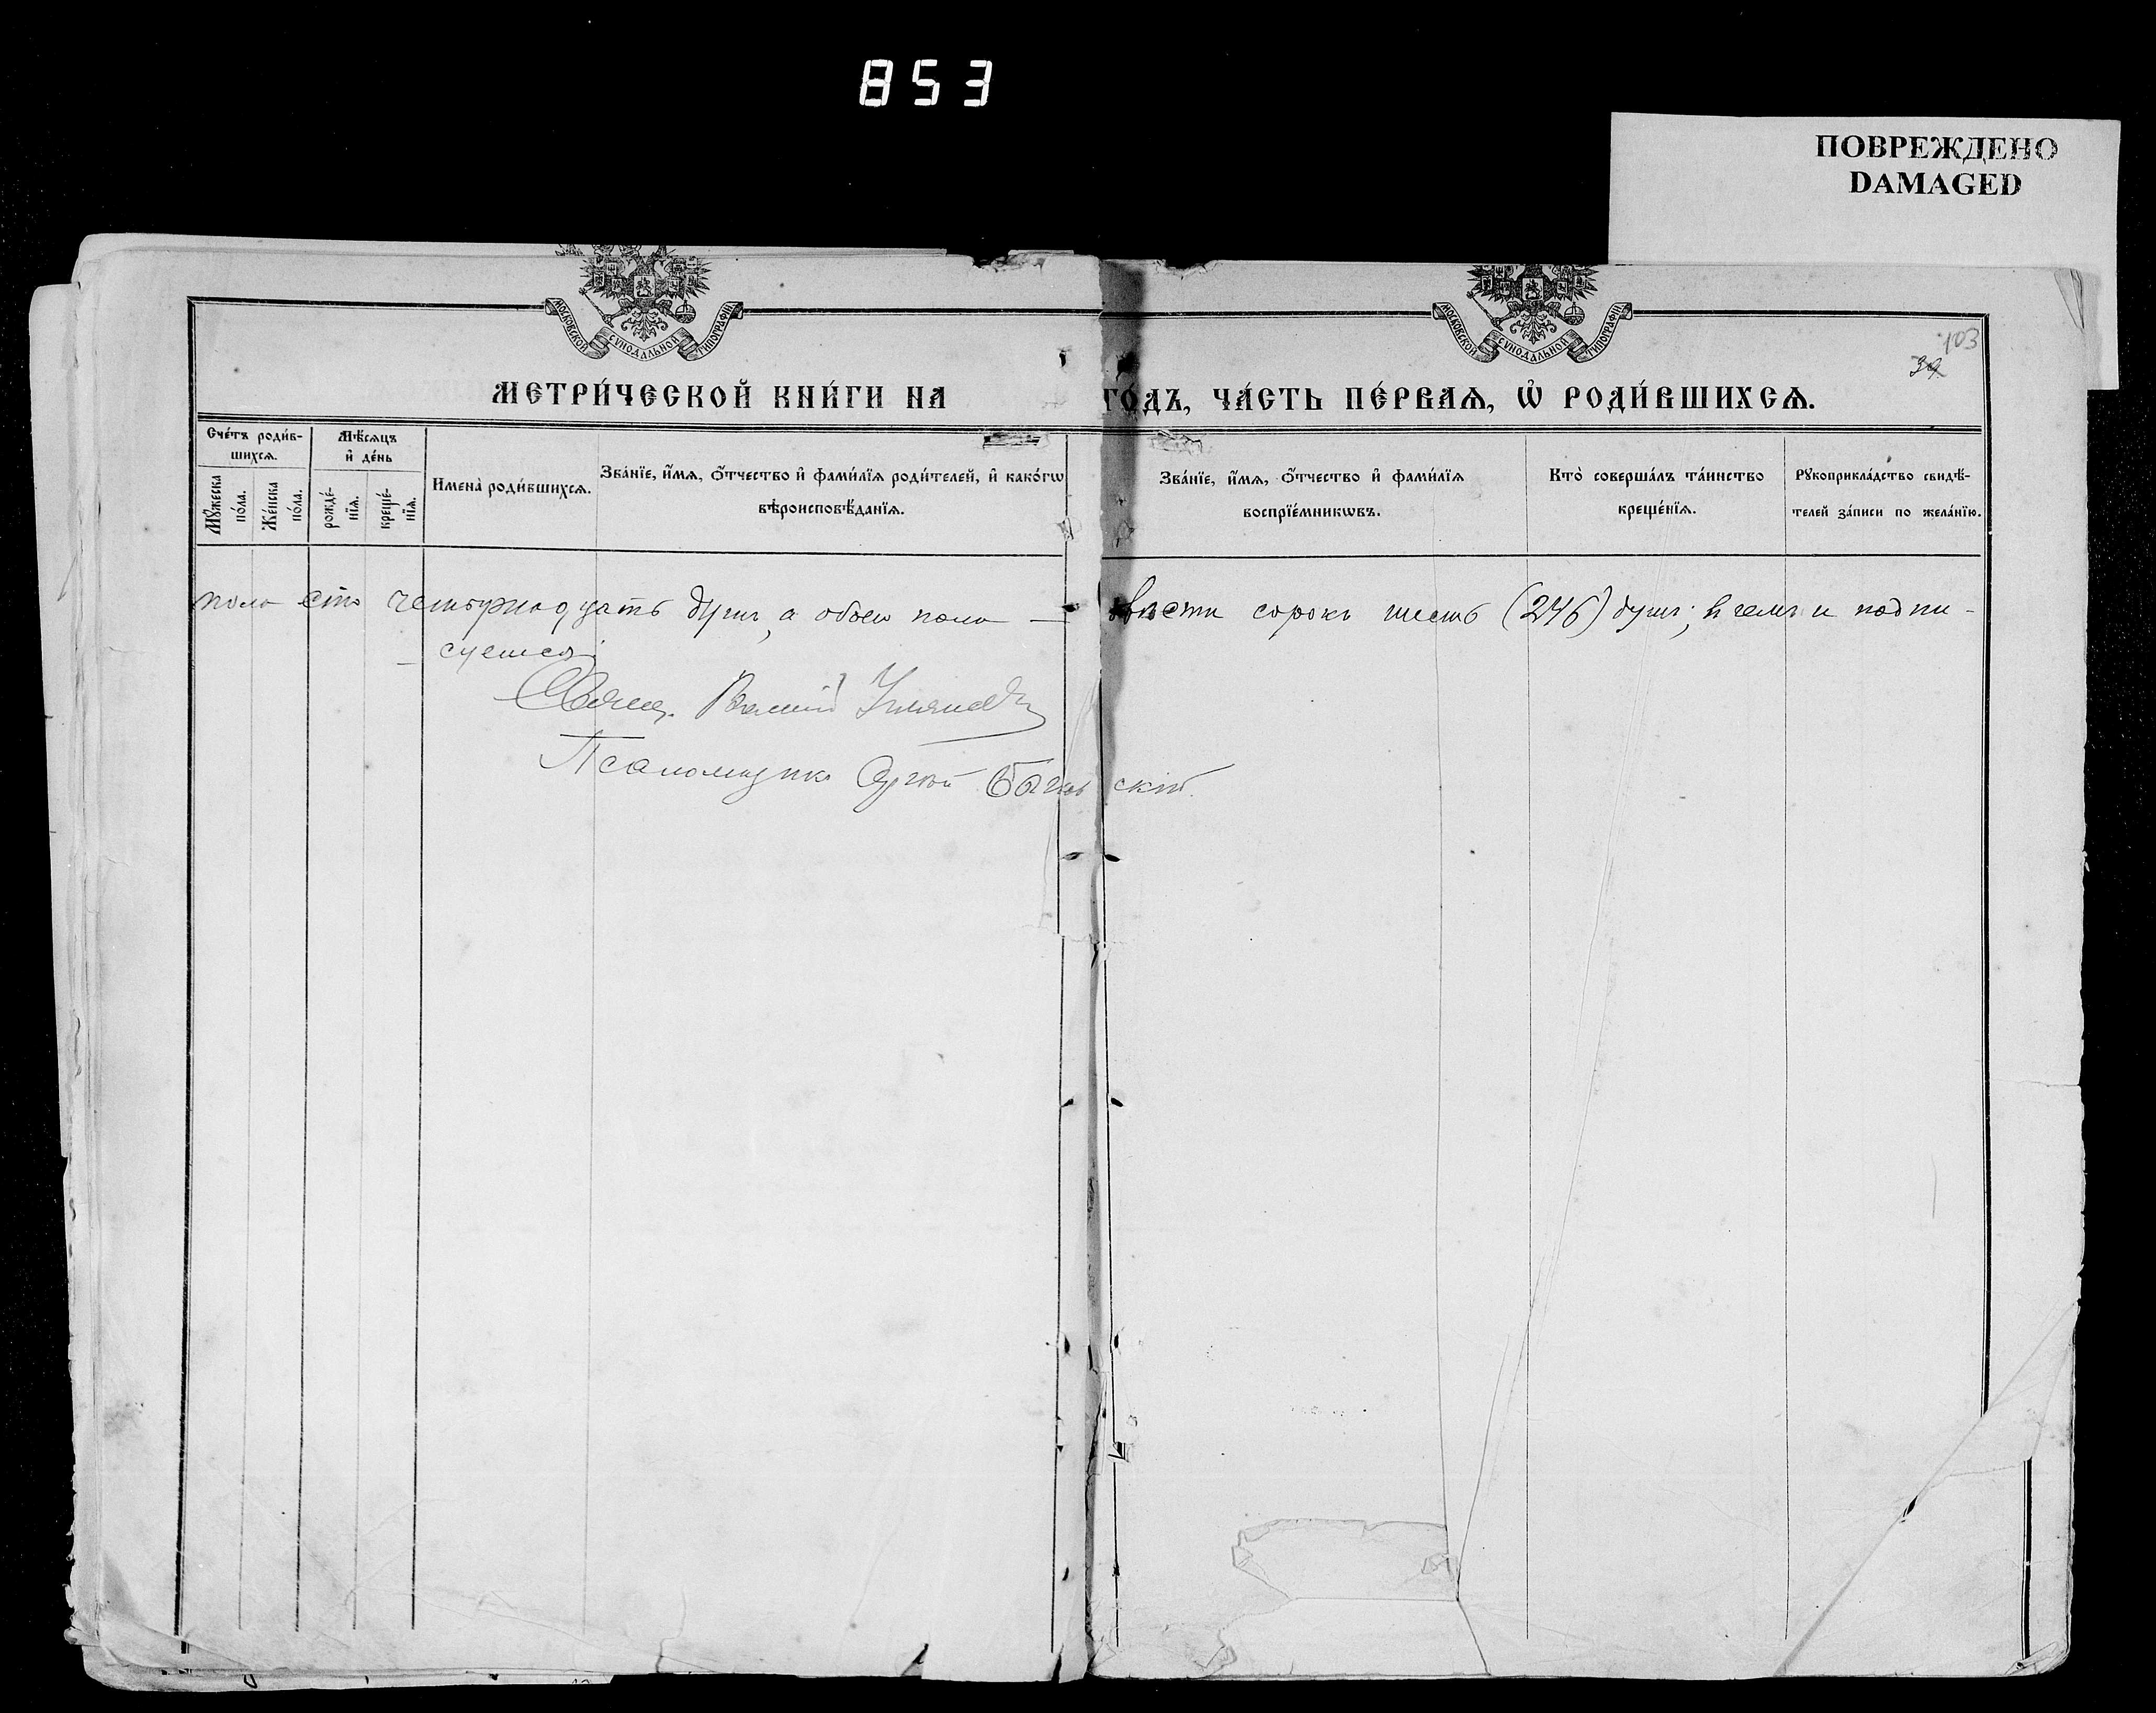 853
ПОВРЕЖДЕНО
DAMAGED
МОСКОВСКОЙ СѴНОДАЛЬНОЙ ТИПОГРАФІИ
МОСКОВСКОЙ СѴНОДАЛЬНОЙ ТИПОГРАФІИ
103
39
МЕТРИ́ЧЕСКОЙ КНИ́ГИ НА ГО́ДЪ, ЧА́СТЬ ПЕ́РВАѦ, Ѡ҆ РОДИ́ВШИХСѦ.
Сче́тъ роди́в-
шихсѧ.
Мꙋ́жеска
по́ла.
Же́нска
по́ла.
Мѣ́сѧцъ
и҆ де́нь
рожде́-
нїѧ.
креще́-
нїѧ.
Имена̀ роди́вшихсѧ.
Зва́нїе, и҆́мѧ, ѻ҆́тчество и҆ фами́лїѧ роди́телей, и҆ како́гѡ
вѣроисповѣ́данїѧ.
Зва́нїе, и҆́мѧ, ѻ҆́тчество и҆ фами́лїѧ
воспрїе́мникѡвъ.
Кто̀ соверша́лъ та́инство
креще́нїѧ.
Рꙋкоприкла́дство свидѣ́-
телей за́писи по жела́нїю.
пола сто четырнадцать душъ, а обоего пола — двѣсти сорокъ шесть (246) душъ; въ чемъ и подпи-
суемся:
Священ. Василій
Псаломщикъ Сергѣй скій.